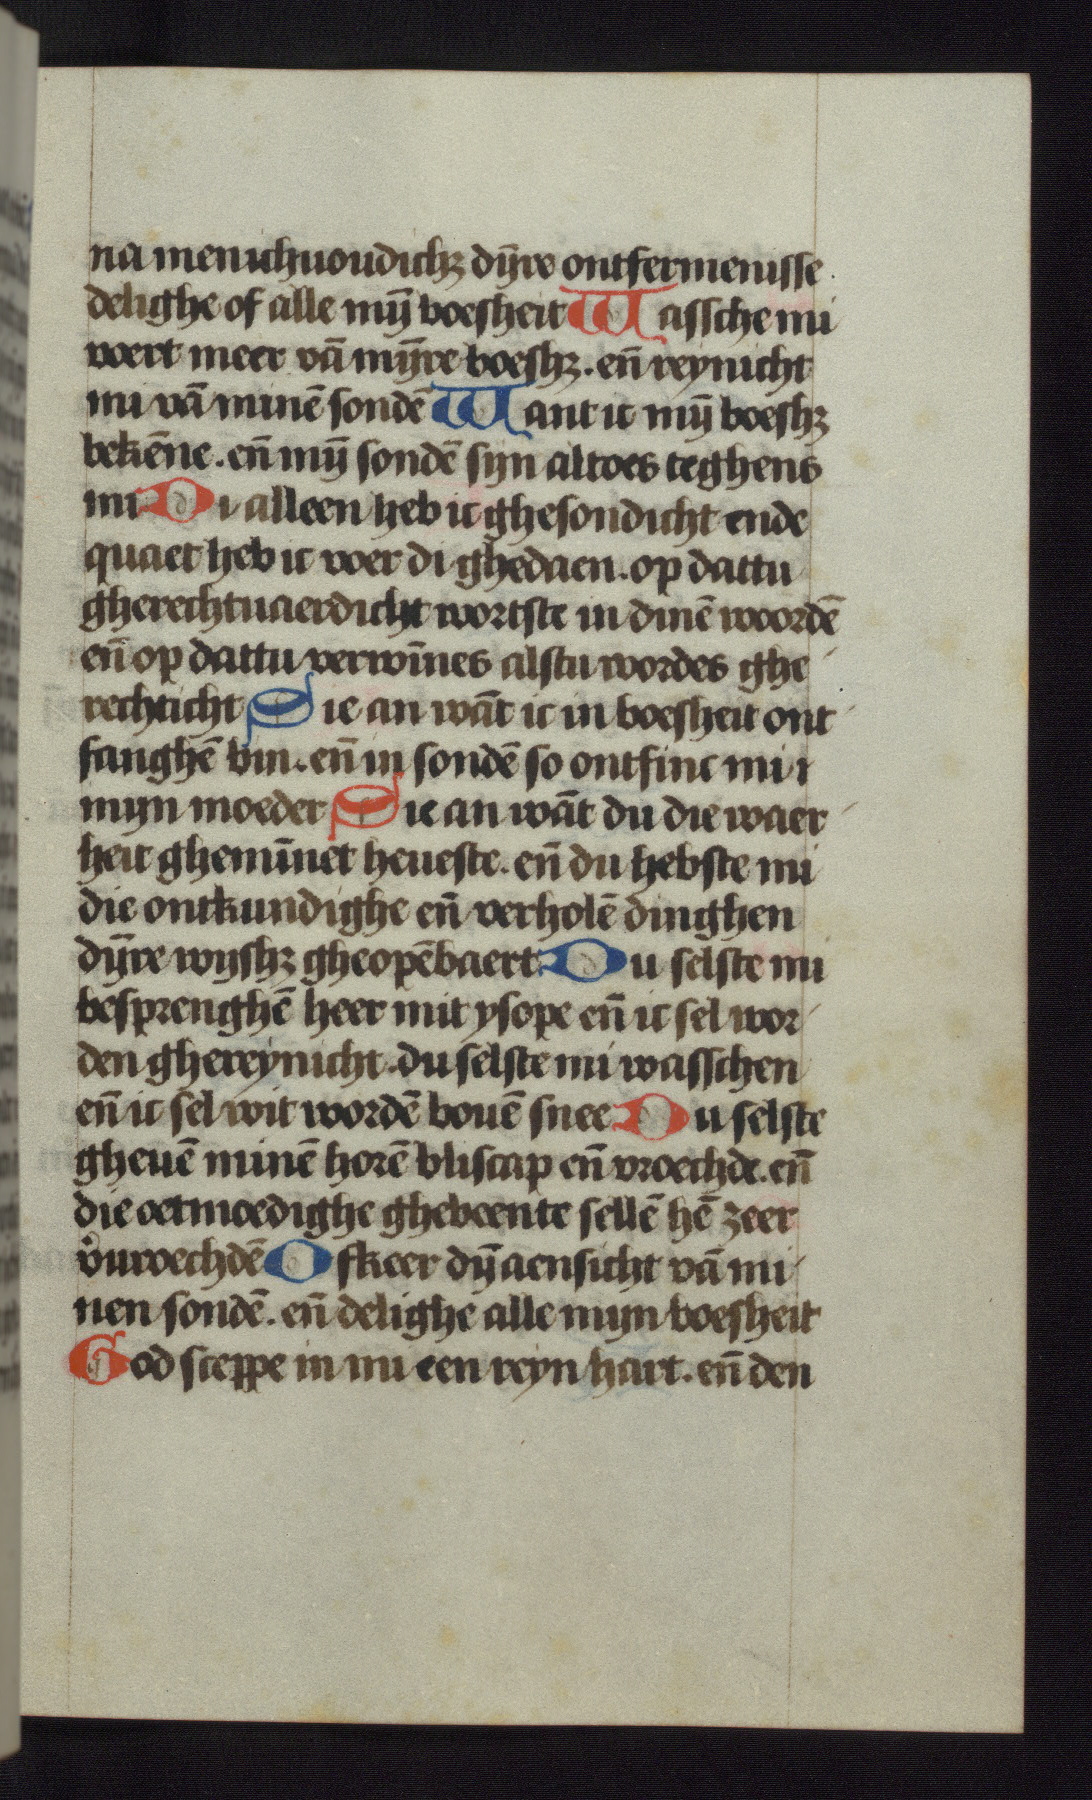 na menichuoudichꝫ dȳre ontfermenisse.
delighe of alle mȳ boesheit Wassche mi
voert meer vā mȳre boeshꝫ. en̄ reynicht
mi vā minē sondē Want ic mȳ boeshꝫ
bekēne. en̄ mȳ sondē syn altoes teghens
mi Di alleen heb ic ghesondicht ende
quaet heb ic voer di ghedaen. op dattu
gherechtuaerdicht wortste in dinē woordē
en̄ op dattu verwīnes alstu wordes ghe
rechticht Sie an wāt ic in boesheit ont
fanghē bin. en̄ in sondē so ontfinc mi
myn moeder Sie an wāt du die waer
heit ghemīnet heueste. en̄ du hebste mi
die ontkundighe en̄ verholē dinghen
dȳre wyshꝫ gheopēbaert Du selste mi
besprenghē heer mit ysope en̄ ic sel wor
den ghereynicht. du selste mi wasschen
en̄ ic sel wit wordē bouē snee Du selste
gheuē minē horē bliscap en̄ vroechde. en̄
die oetmoedighe ghebeente sellē hē zeer
v̓uroechdē Ofkeer dȳ aensicht vā mi
nen sondē. en̄ delighe alle myn boesheit
God sceppe in mi een reyn hart. en̄ den